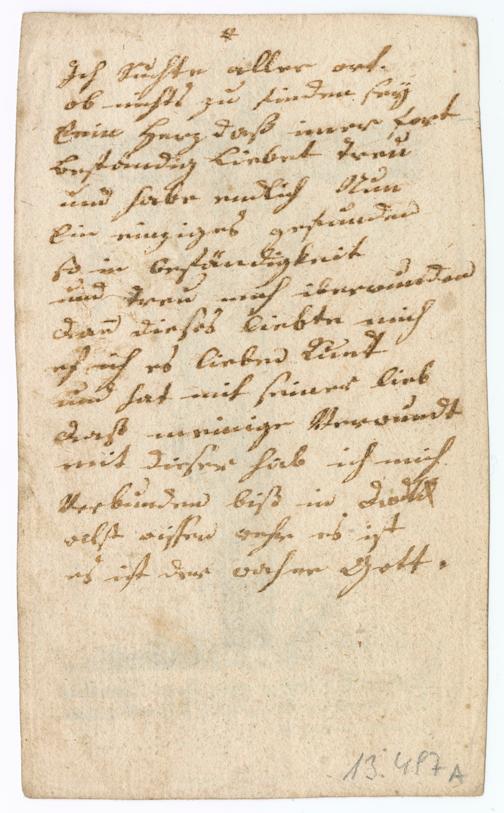 *
Ich Suchte aller ort.
ob nichts zu finden sey
Kein Herz daß imer fort
beständig liebet Treu
und habe endlich Nun
Ein einziges gefunden
so in beständigkeit
und Treu mich iberwunden
dan dieses liebte mich
eh ich es lieben Kunt
und hat mit seiner lieb
daß meinige Verwundt
mit dieser hab ich mich
Verbunden biß in
wissen wehr es ist
es ist der wahre Gott.
13.487 A